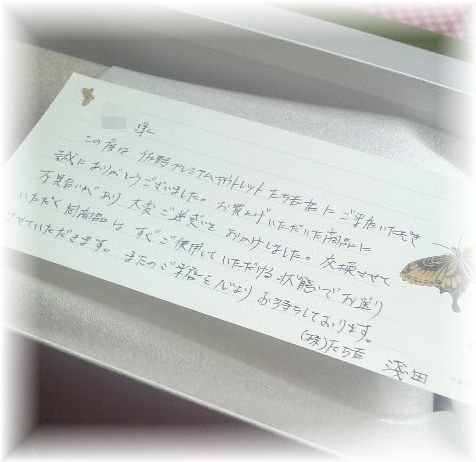 様
この度は 佐野プレミアムアウトレット たち吉店にご来店いただき
誠にありがとうございました。お買上げいただいた商品に
不具合があり 大変ご迷惑を おかけしました。交換させて
いただく同商品は すぐご使用していただける状態でお送り
させていただきます。またのご来店を心よりお待ちしております。
(株)たち吉 淺田